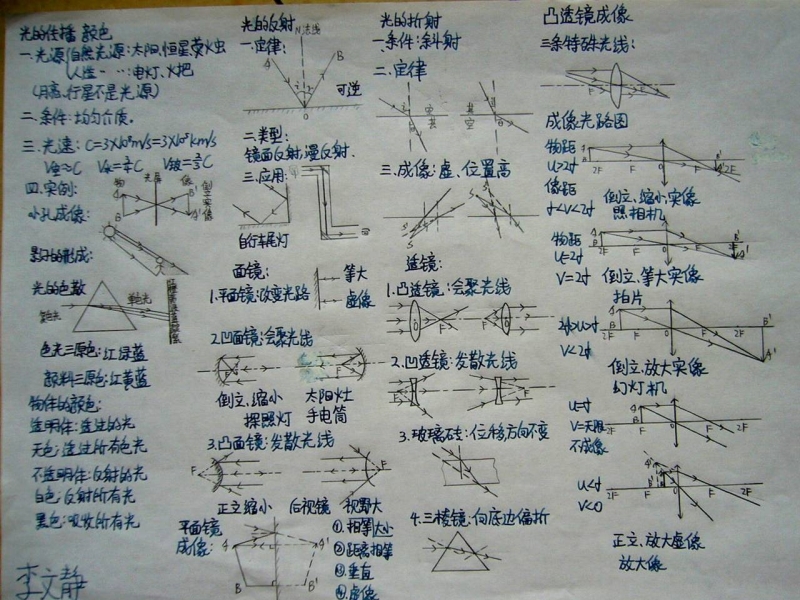 光的传播 颜色
一.光源{自然光源:太阳、恒星萤火虫
人造‥‥:电灯、火把
(月亮、行星不是光源)
二.条件:均匀介质。
三.光速:C=3×10⁸m/s=3×10⁵km/s
V空≈C V水=¾C V玻=⅔C
四.实例:
物 光屏 像
倒立实像
A B B' A'
小孔成像:
影子的形成:
光的色散
色光三原色:红绿蓝
颜料三原色:红黄蓝
物体的颜色:
透明体:透过的光
无色:透过所有色光
不透明体:反射的光
白色:反射所有光
黑色:吸收所有光
李文静
光的反射
一.定律:
N法线
A B
i r
O
可逆
二.类型:
镜面反射,漫反射.
三.应用:
自行车尾灯
面镜:
1.平面镜:改变光路
等大
虚像
2.凹面镜:会聚光线
F
倒立、缩小
探照灯
太阳灶
手电筒
3.凸面镜:发散光线
F F
正立缩小 后视镜 视野大
平面镜
成像:
A A'
B B'
①.相等大小
②距离相等
③.垂直
④.虚像
光的折射
一.条件:斜射
二.定律
三.成像:虚、位置高
透镜:
1.凸透镜:会聚光线
F F
2.凹透镜:发散光线
3.玻璃砖:位移方向不变
4.三棱镜:向底边偏折
凸透镜成像
三条特殊光线:
F O F
成像光路图
物距
u>2f
像距
f<v<2f
A B 2F F O F A' 2F
倒立、缩小,实像
照相机
物距
u=2f
v=2f
倒立、等大实像
拍片
2f>u>f
v<2f
2F F O F 2F B' A'
倒立、放大实像
幻灯机
u=f
v=无限
不成像
2F F O F 2F
u<f
v<0
2F F O F 2F
正立、放大虚像
放大像